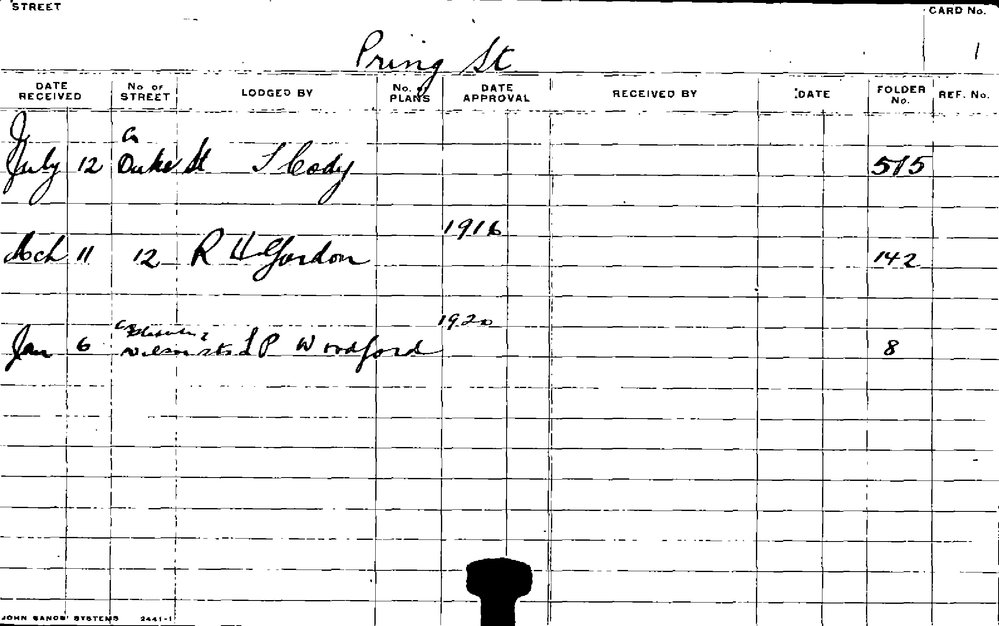 STREET
CARD No.
Pring St
1
DATE RECEIVED No of STREET LODGED BY No. of PLANS DATE APPROVAL RECEIVED BY DATE FOLDER No. REF. No.
July 12 Duke St Cody 515
1916
Mch 11 12 R H Gordon 142
1920
Jan 6 P Woodford 8
JOHN SANDS' SYSTEMS 2441-1